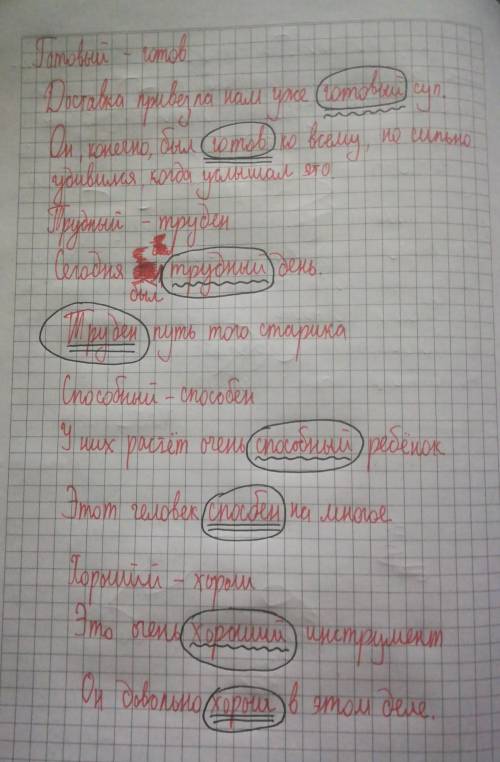 Готовый - готов
Доставка привезла нам уже готовый суп.
Он, конечно, был готов ко всему, но сильно
удивился, когда услышал это
Трудный - труден
Сегодня трудный день.
был
Труден путь того старика
Способный - способен
У них растёт очень способный ребёнок
Этот человек спосбен на многое
Хороший - хорош
Это очень хороший инструмент
Он довольно хорош в этом деле.